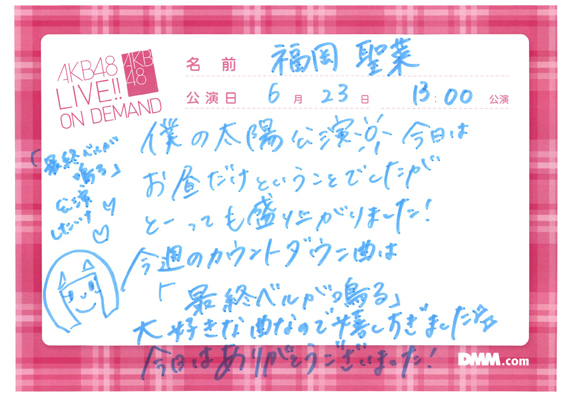 AKB48
LIVE!!
ON DEMAND
AKB
48
名 前 福岡 聖菜
公演日 6月 23日 13:00 公演
僕の太陽公演 今日は
お昼だけということでしたが
とーっても盛り上がりました!
今週のカウントダウン曲は
「最終ベルが鳴る」
大好きな曲なので嬉しすぎました
今日はありがとうございました!
「最終ベルが
鳴る」
公演
したいけ
DMM.com